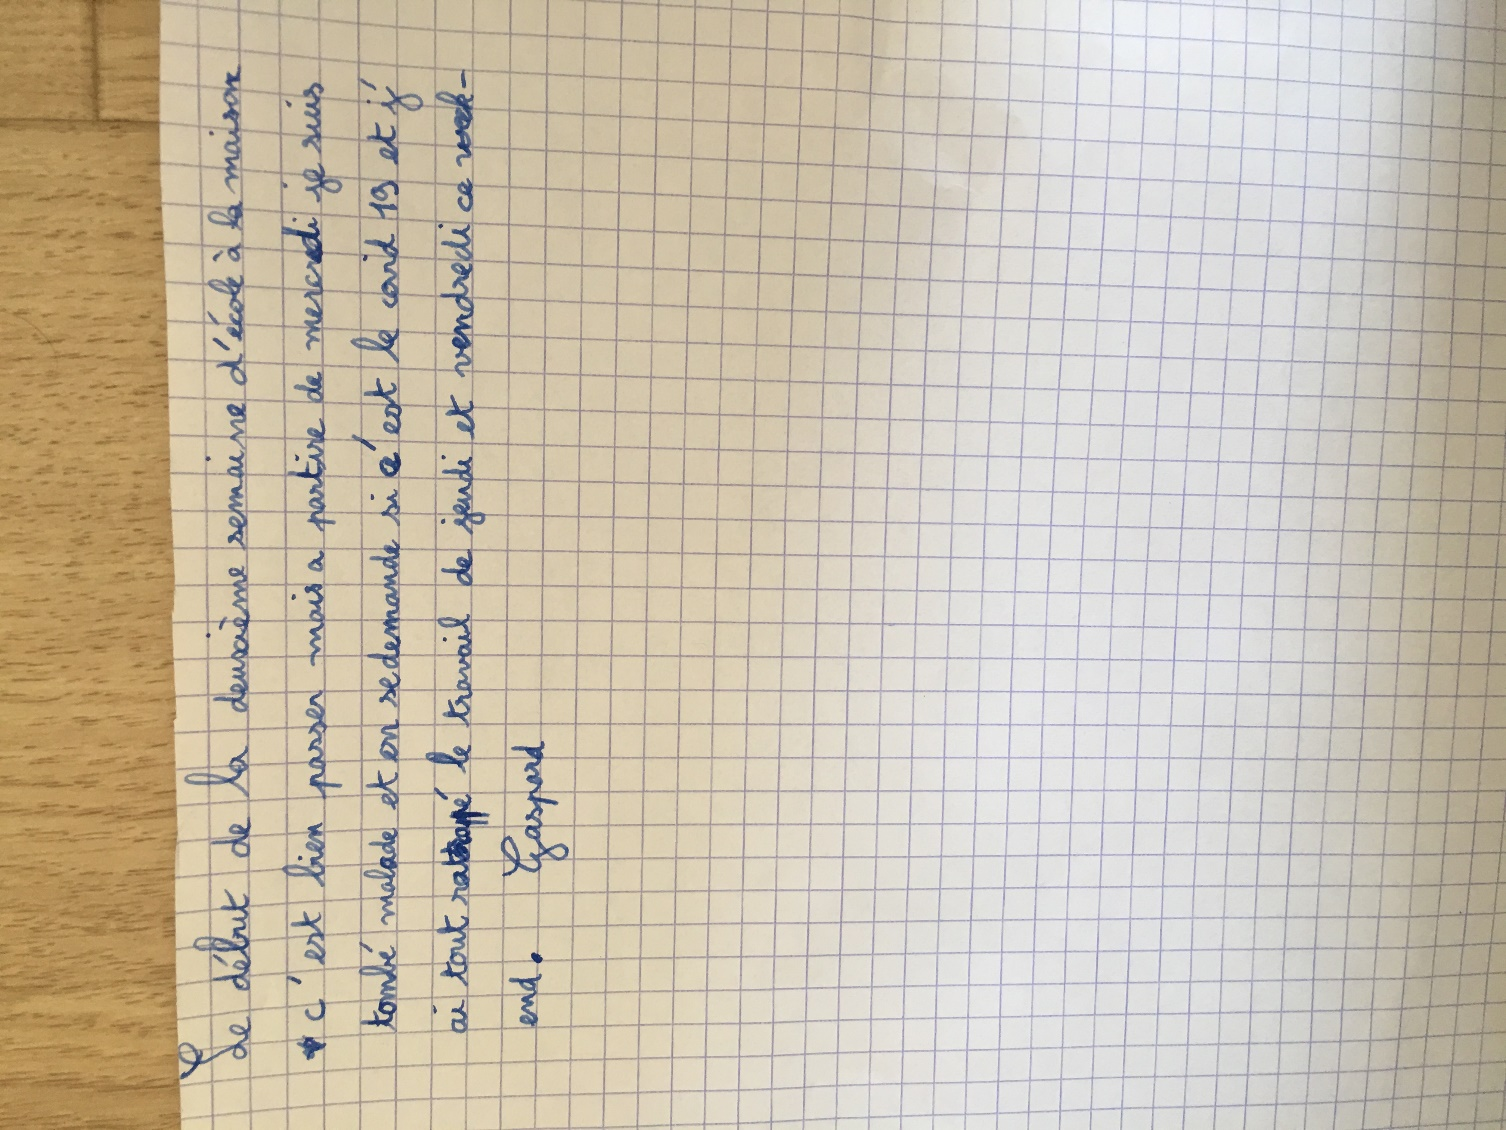 Le début de la deuxième semaine d'école à la maison
c'est bien passer mais a partire de mercredi je suis
tombé malade et on se demande si c'est le covid 19 et j'
ai tout rattrappé le travail de jeudi et vendredi ce week-
end. Gaspard